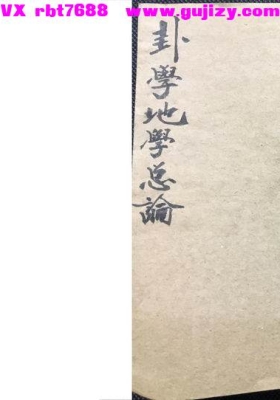 VX rbt7688   www.gujizy.com
卦學地學总論